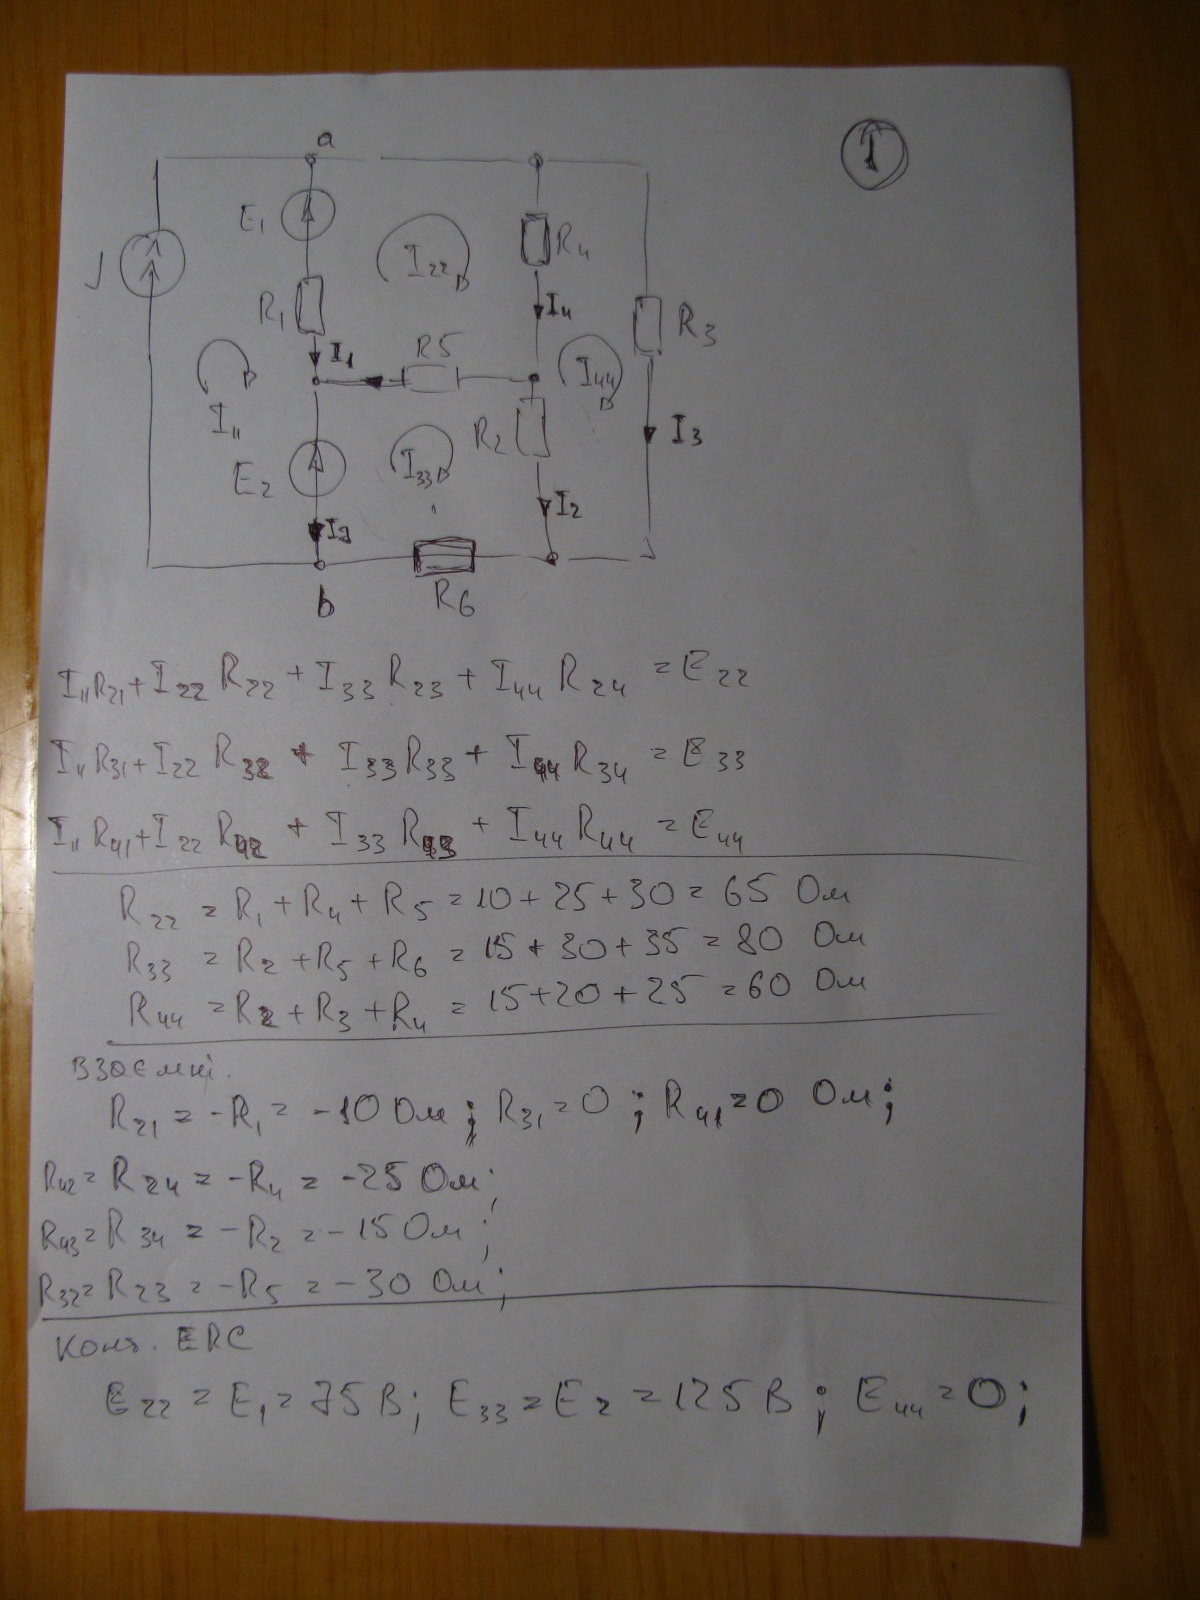 1
a
J
E₁
I₂₂
R₄
R₁
I₁
R5
I₄
R₃
I₁₁
I₄₄
I₃
E₂
I₃₃
R₂
I₂
b
R6
I₁₁R₂₁+I₂₂ R₂₂ + I₃₃ R₂₃ + I₄₄ R₂₄ = E₂₂
I₁₁R₃₁+I₂₂ R₃₂ + I₃₃R₃₃ + I₄₄ R₃₄ = E₃₃
I₁₁R₄₁+I₂₂ R₄₂ + I₃₃ R₄₃ + I₄₄ R₄₄ = E₄₄
R₂₂ = R₁ + R₄ + R₅ = 10 + 25 + 30 = 65 Ом
R₃₃ = R₂ + R₅ + R₆ = 15 + 30 + 35 = 80 Ом
R₄₄ = R₂ + R₃ + R₄ = 15+20+25 = 60 Ом
взаємні.
R₂₁ = -R₁ = -10 Ом ; R₃₁ = 0 ; R₄₁=0 Ом ;
R₄₂= R₂₄ = -R₄ = -25 Ом ;
R₄₃= R₃₄ = -R₂ = -15 Ом ;
R₃₂= R₂₃ = -R₅ = -30 Ом ;
Конт. ЕРС
E₂₂ = E₁ = 75 В ; E₃₃ = E₂ = 125 В ; E₄₄ = 0 ;